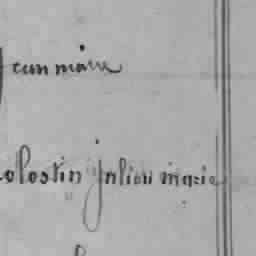 jean marie
celestin julien marie